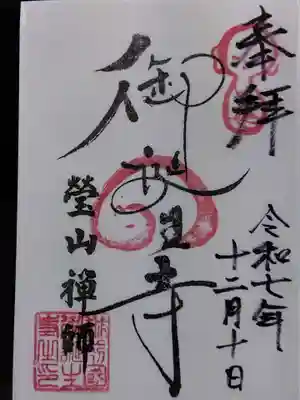 奉拝
令和七年
十二月十日
御誕生寺
瑩山禅師